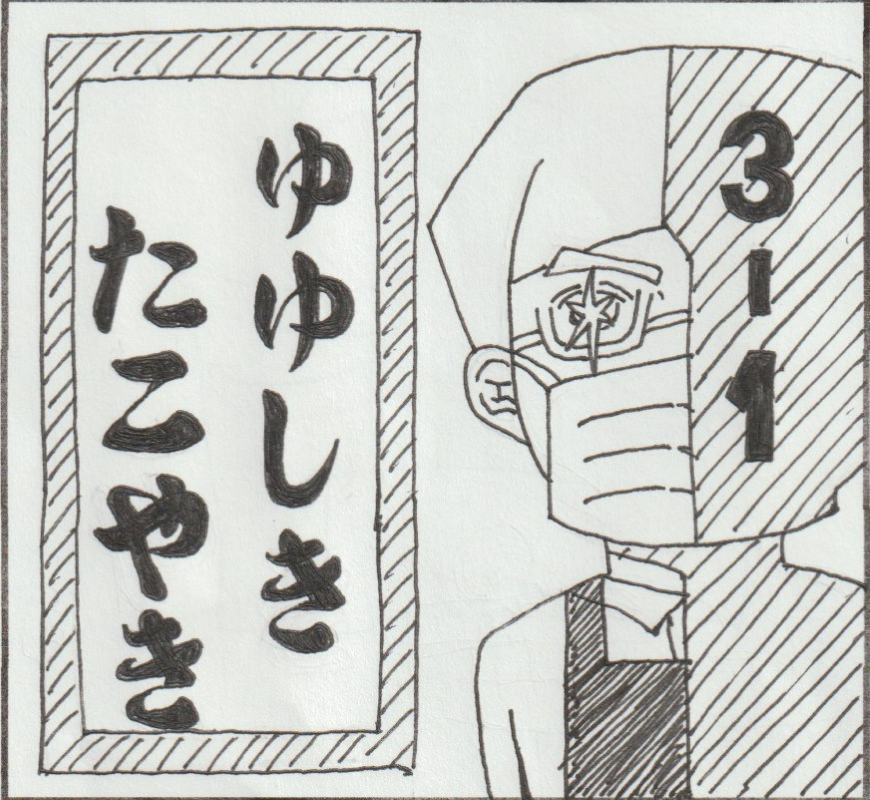 ゆゆしき
たこやき
3-1